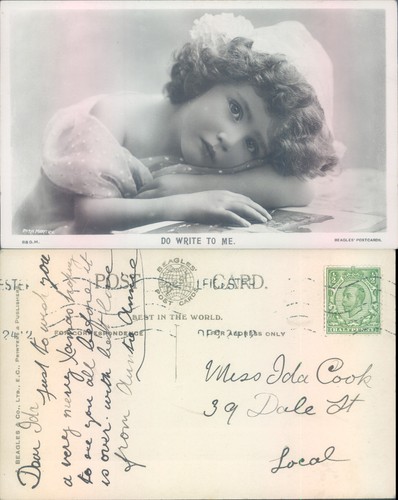 DO WRITE TO ME.
BEAGLES' POSTCARDS.
POST CARD.
BEAGLES'
POST CARDS
BEST IN THE WORLD.
FOR CORRESPONDENCE
FOR ADDRESS ONLY
BEAGLES & CO., LTD., E.C., PRINTERS & PUBLISHERS
Dear Ida
just to wish you
a very merry Xmas hope
to see you all before it
is over. with best love
from Auntie Annie
Miss Ida Cook
39 Dale St
Local
HALFPENNY